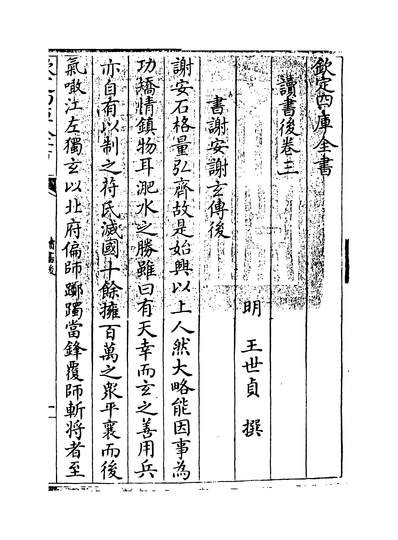 欽定四庫全書
讀書後卷三
明 王世貞 撰
書謝安謝玄傳後
謝安石格量弘齊故是始興以上人然大略能因事為
功矯情鎮物耳淝水之勝雖曰有天幸而玄之善用兵
亦自有以制之苻氏滅國十餘擁百萬之衆平襄而後
氣噉江左獨玄以北府偏師躑躅當鋒覆師斬將者至
讀書後